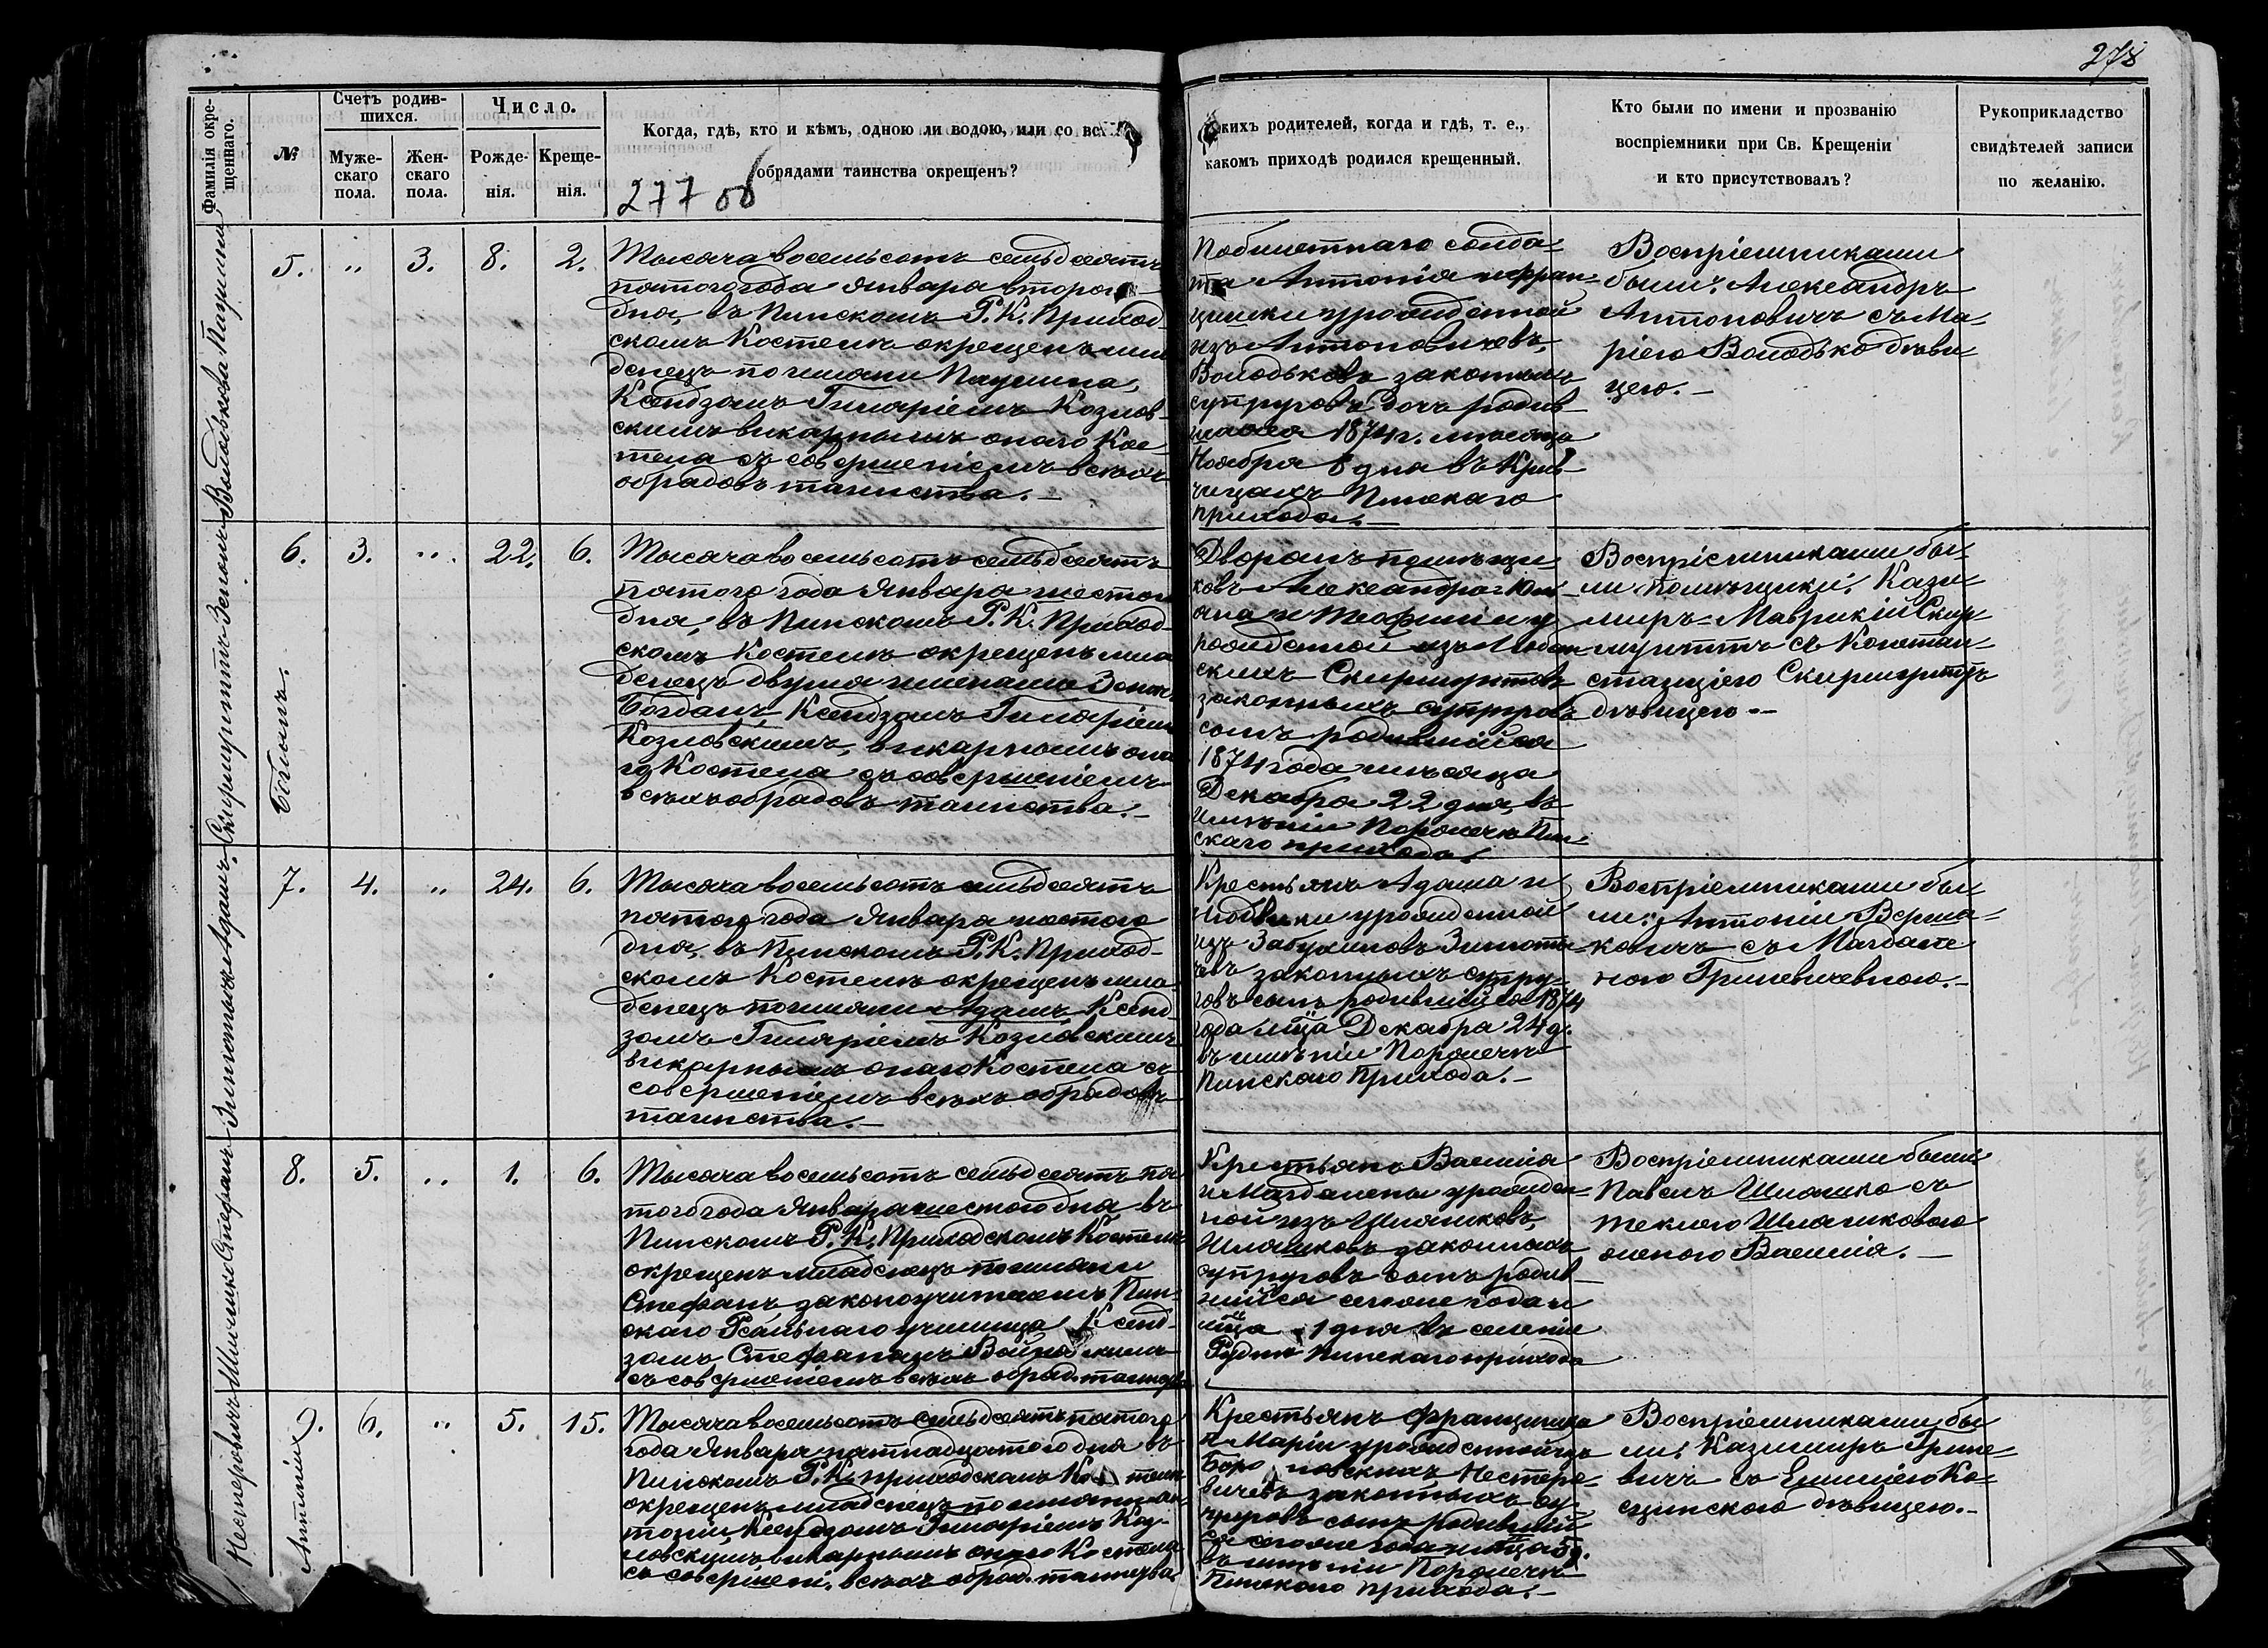 278
Фамилія окре-
щеннаго.
№
Счетъ родив-
шихся.
Муже-
скаго
пола.
Жен-
скаго
пола.
Число.
Рожде-
нія.
Креще-
нія.
Когда, гдѣ, кто и кѣмъ, одною ли водою, или со все
обрядами таинства окрещенъ?
277 об
кихъ родителей, когда и гдѣ, т. е.,
какомъ приходѣ родился крещенный.
Кто были по имени и прозванію
воспріемники при Св. Крещеніи
и кто присутствовалъ?
Рукоприкладство
свидѣтелей записи
по желанію.
Володькова Паулина
5. „ 3. 8. 2.
Тысяча восемьсотъ семьдесятъ
пятого года Января второго
дня, въ Пинскомъ Р. К. Приход-
скомъ Костелѣ окрещенъ мла
денецъ по имени Паулина,
Ксендзомъ Гиляріемъ Козлов-
скимъ викарнымъ онаго Кос
тела съ совершеніемъ всѣхъ
обрядовъ таинства.
Побилетнаго солда-
та Антонія и Фран-
цишки урожденной
изъ Антоновичовъ,
Володьковъ законныхъ
супруговъ дочь родив
шаяся 1874 г. мѣсяца
Ноября 8 дня въ
Пинскаго
прихода.
Воспріемниками
были: Александръ
Антоновичъ съ Ма-
ріею Володько дѣви
цею.
Скирмунттъ Зенонъ
Богданъ.
6. 3. „ 22. 6.
Тысяча восемьсотъ семьдесятъ
пятого года Января шестого
дня, въ Пинскомъ Р. К. Приход-
скомъ Костелѣ окрещенъ мла
денецъ двумя именами Зенонъ
Богданъ, Ксендзомъ Гиляріемъ
Козловскимъ, викарнымъ она
го Костела съ совершеніемъ
всѣхъ обрядовъ таинства.
Дворянъ помѣщи
ковъ Александра Юлі
ана и Теофили у
рожденной изъ
скихъ Скирмунтовъ
законныхъ супруговъ
сынъ родившійся
1874 года мѣсяца
Декабря 22 дня, въ
имѣніи Поречьѣ Пин
скаго прихода.
Воспріемниками бы-
ли помѣщики: Кази
миръ-Маврикій Скир-
мунттъ съ Констан-
станціею Скирмунттъ
дѣвицею.
Зинотычъ Адамъ.
7. 4. „ 24. 6.
Тысяча восемьсотъ семьдесятъ
пятого года Января шестого
дня, въ Пинскомъ Р. К. Приход-
скомъ Костелѣ окрещенъ мла
денецъ по имени Адамъ Ксенд
зомъ Гиляріемъ Козловскимъ
викарнымъ онаго Костела съ
совершеніемъ всѣхъ обрядовъ
таинства.
Крестьянъ Адама и
Людвики урожденной
изъ
законныхъ супру-
говъ сынъ родившійся 1874
года м̃ца Декабря 24 д.
въ имѣніи Поречьѣ
Пинскаго Прихода.
Воспріемниками бы
ли: Антоній
съ Магдале
ною Гриневичевною.
Шляшко Стефанъ
8. 5. „ 1. 6.
Тысяча восемьсотъ семьдесятъ пя
того года Января шестого дня въ
Пинскомъ Р. К. Приходскомъ Костелѣ
окрещенъ младенецъ по имени
Стефанъ, законоучителемъ Пин-
скаго Реальнаго училища Ксенд-
зомъ Стефаномъ
съ совершеніемъ всѣхъ обряд. таинства
Крестьянъ Василія
и Магдалены урожден-
ной изъ Шляшковъ,
Шляшковъ законныхъ
супруговъ сынъ родив
шійся сего же года и
м̃ца 1 дня въ селеніи
Пинскаго прихода
Воспріемниками были
Павелъ Шляшко съ
Теклею Шляшковою
женою Василія.
Нестеровичъ
Антоній
9. 6. „ 5. 15.
Тысяча восемьсотъ семьдесятъ пятого
года Января пятнадцатого дня въ
Пинскомъ Р. К. приходскомъ Костелѣ
окрещенъ младенецъ по имени Ан-
тоній, Ксендзомъ Гиляріемъ Коз-
ловскимъ викарнымъ онаго Костела
съ совершені. всѣхъ обряд. таинства.
Крестьянъ Францишка
и Маріи урожденной изъ
Нестеро-
вичевъ законныхъ су-
пруговъ сынъ родившій
ся сего же года и м̃ца 5 д.
въ имѣніи Поречьѣ
Пинскаго прихода.
Воспріемниками бы
ли: Казимиръ Грине-
вичъ съ Емиліею Ко-
щинскою дѣвицею.